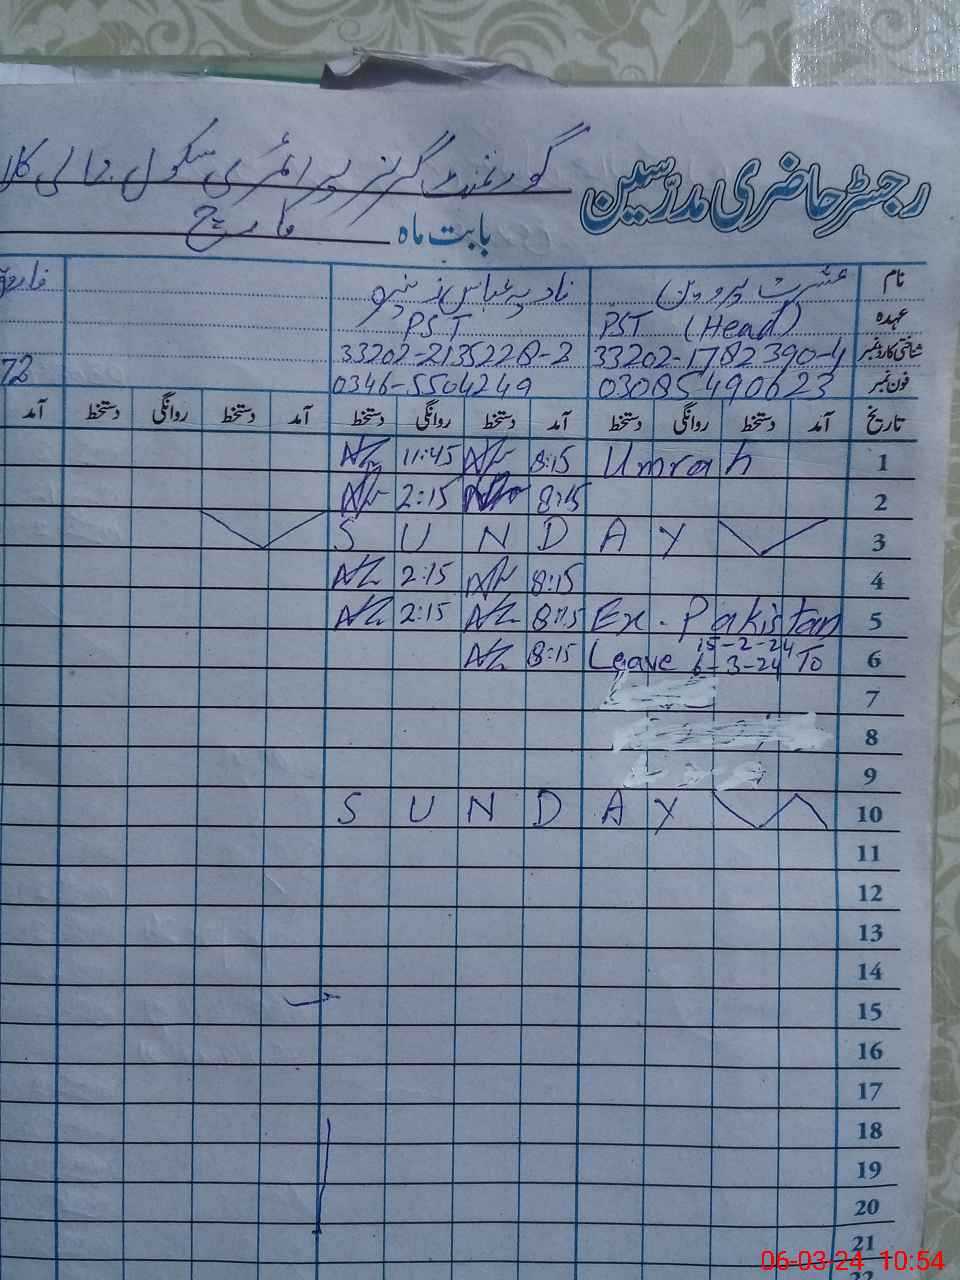 رجسٹر حاضری مدرسین گورنمنٹ گرلز پرائمری سکول
بابت ماہ مارچ
نام عشرت پروین نادیہ عباس
عہدہ PST (Head) PST
شناختی کارڈ نمبر 33202-1782390-4 33202-2135228-2 72
فون نمبر 03085490623 0346-5504249
تاریخ آمد دستخط روانگی دستخط آمد دستخط روانگی دستخط آمد دستخط روانگی دستخط آمد
1 Umrah 8:15 11:45
2 8:15 2:15
3 SUNDAY
4 8:15 2:15
5 Ex. Pakistan 8:15 2:15
6 Leave 15-2-24 To 6-3-24 8:15
7
8
9
10 SUNDAY
11
12
13
14
15
16
17
18
19
20
21
22
06-03-24 10:54